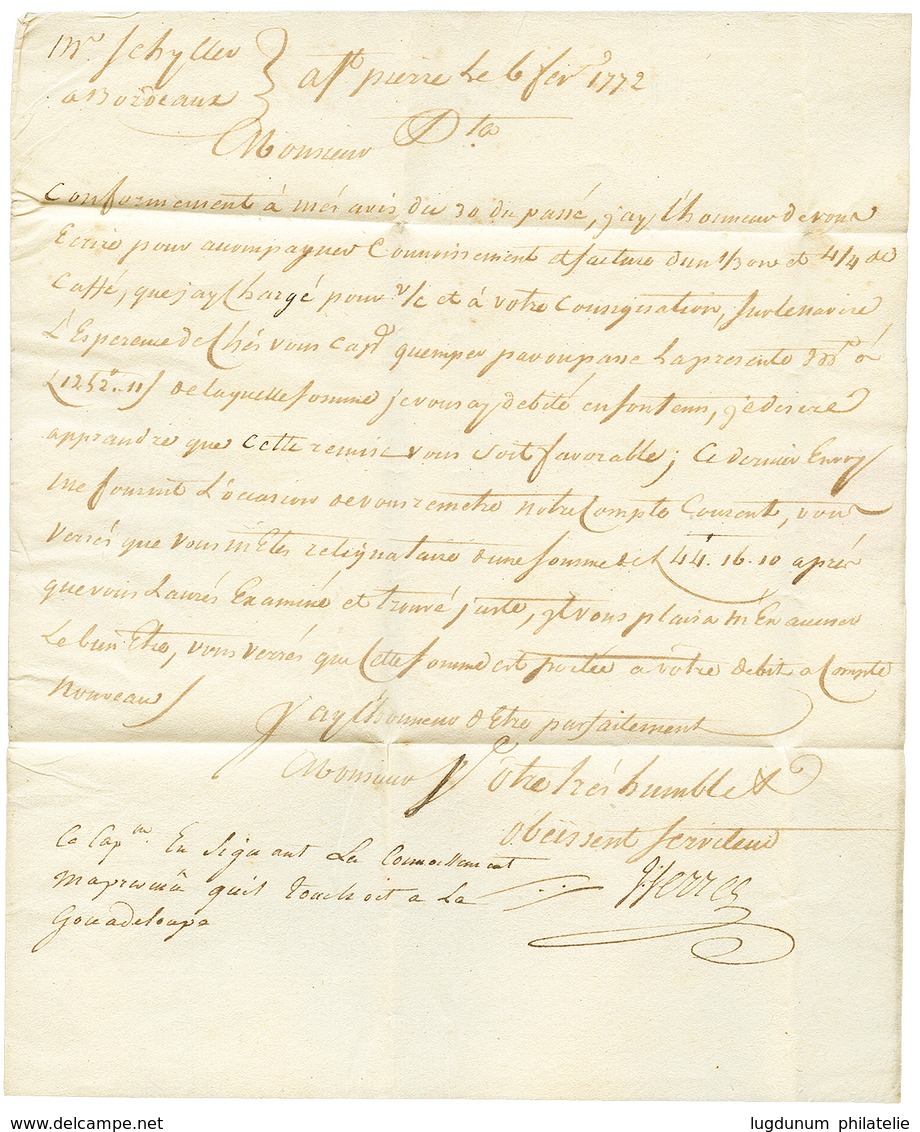 Mr. Schyller
a Bordeaux
a St. pierre Le 6 fevr. 1772
Pta
Monsieur
Conformement à mes avis du 30 du passé, j'ay l'honneur de vous
Ecrire pour acompagner Connoissement et facture d'un 1/3 ove et 4/4 de
Caffé, que j'ay Chargé pour v/c et à votre Consignation, sur le navire
L'Esperence de Chés vous Capne. quemper par
de laquelle somme je vous ay debité je desire
apprandre que Cette remise vous soit favorable; Ce dernier Envoy
me fournit L'occasion de vous remetre notre Compte Courent, vous
Verrés que vous m'Etes d'une somme de L 44. 16. 10 aprés
que vous L'aurés Examiné et trouvé juste, il vous plaira m'En acuser
Le bien Etre, vous verrés que Cette somme est portée a votre debit a Compte
Nouveau
J'ay l'honneur d'Etre parfaitement
Monsieur Votre trés humble &
obeissent serviteur
Le Capne. En signant Le Connoissement
qu'il touchoit a La
Gouadeloupe
lugdunum philatelie